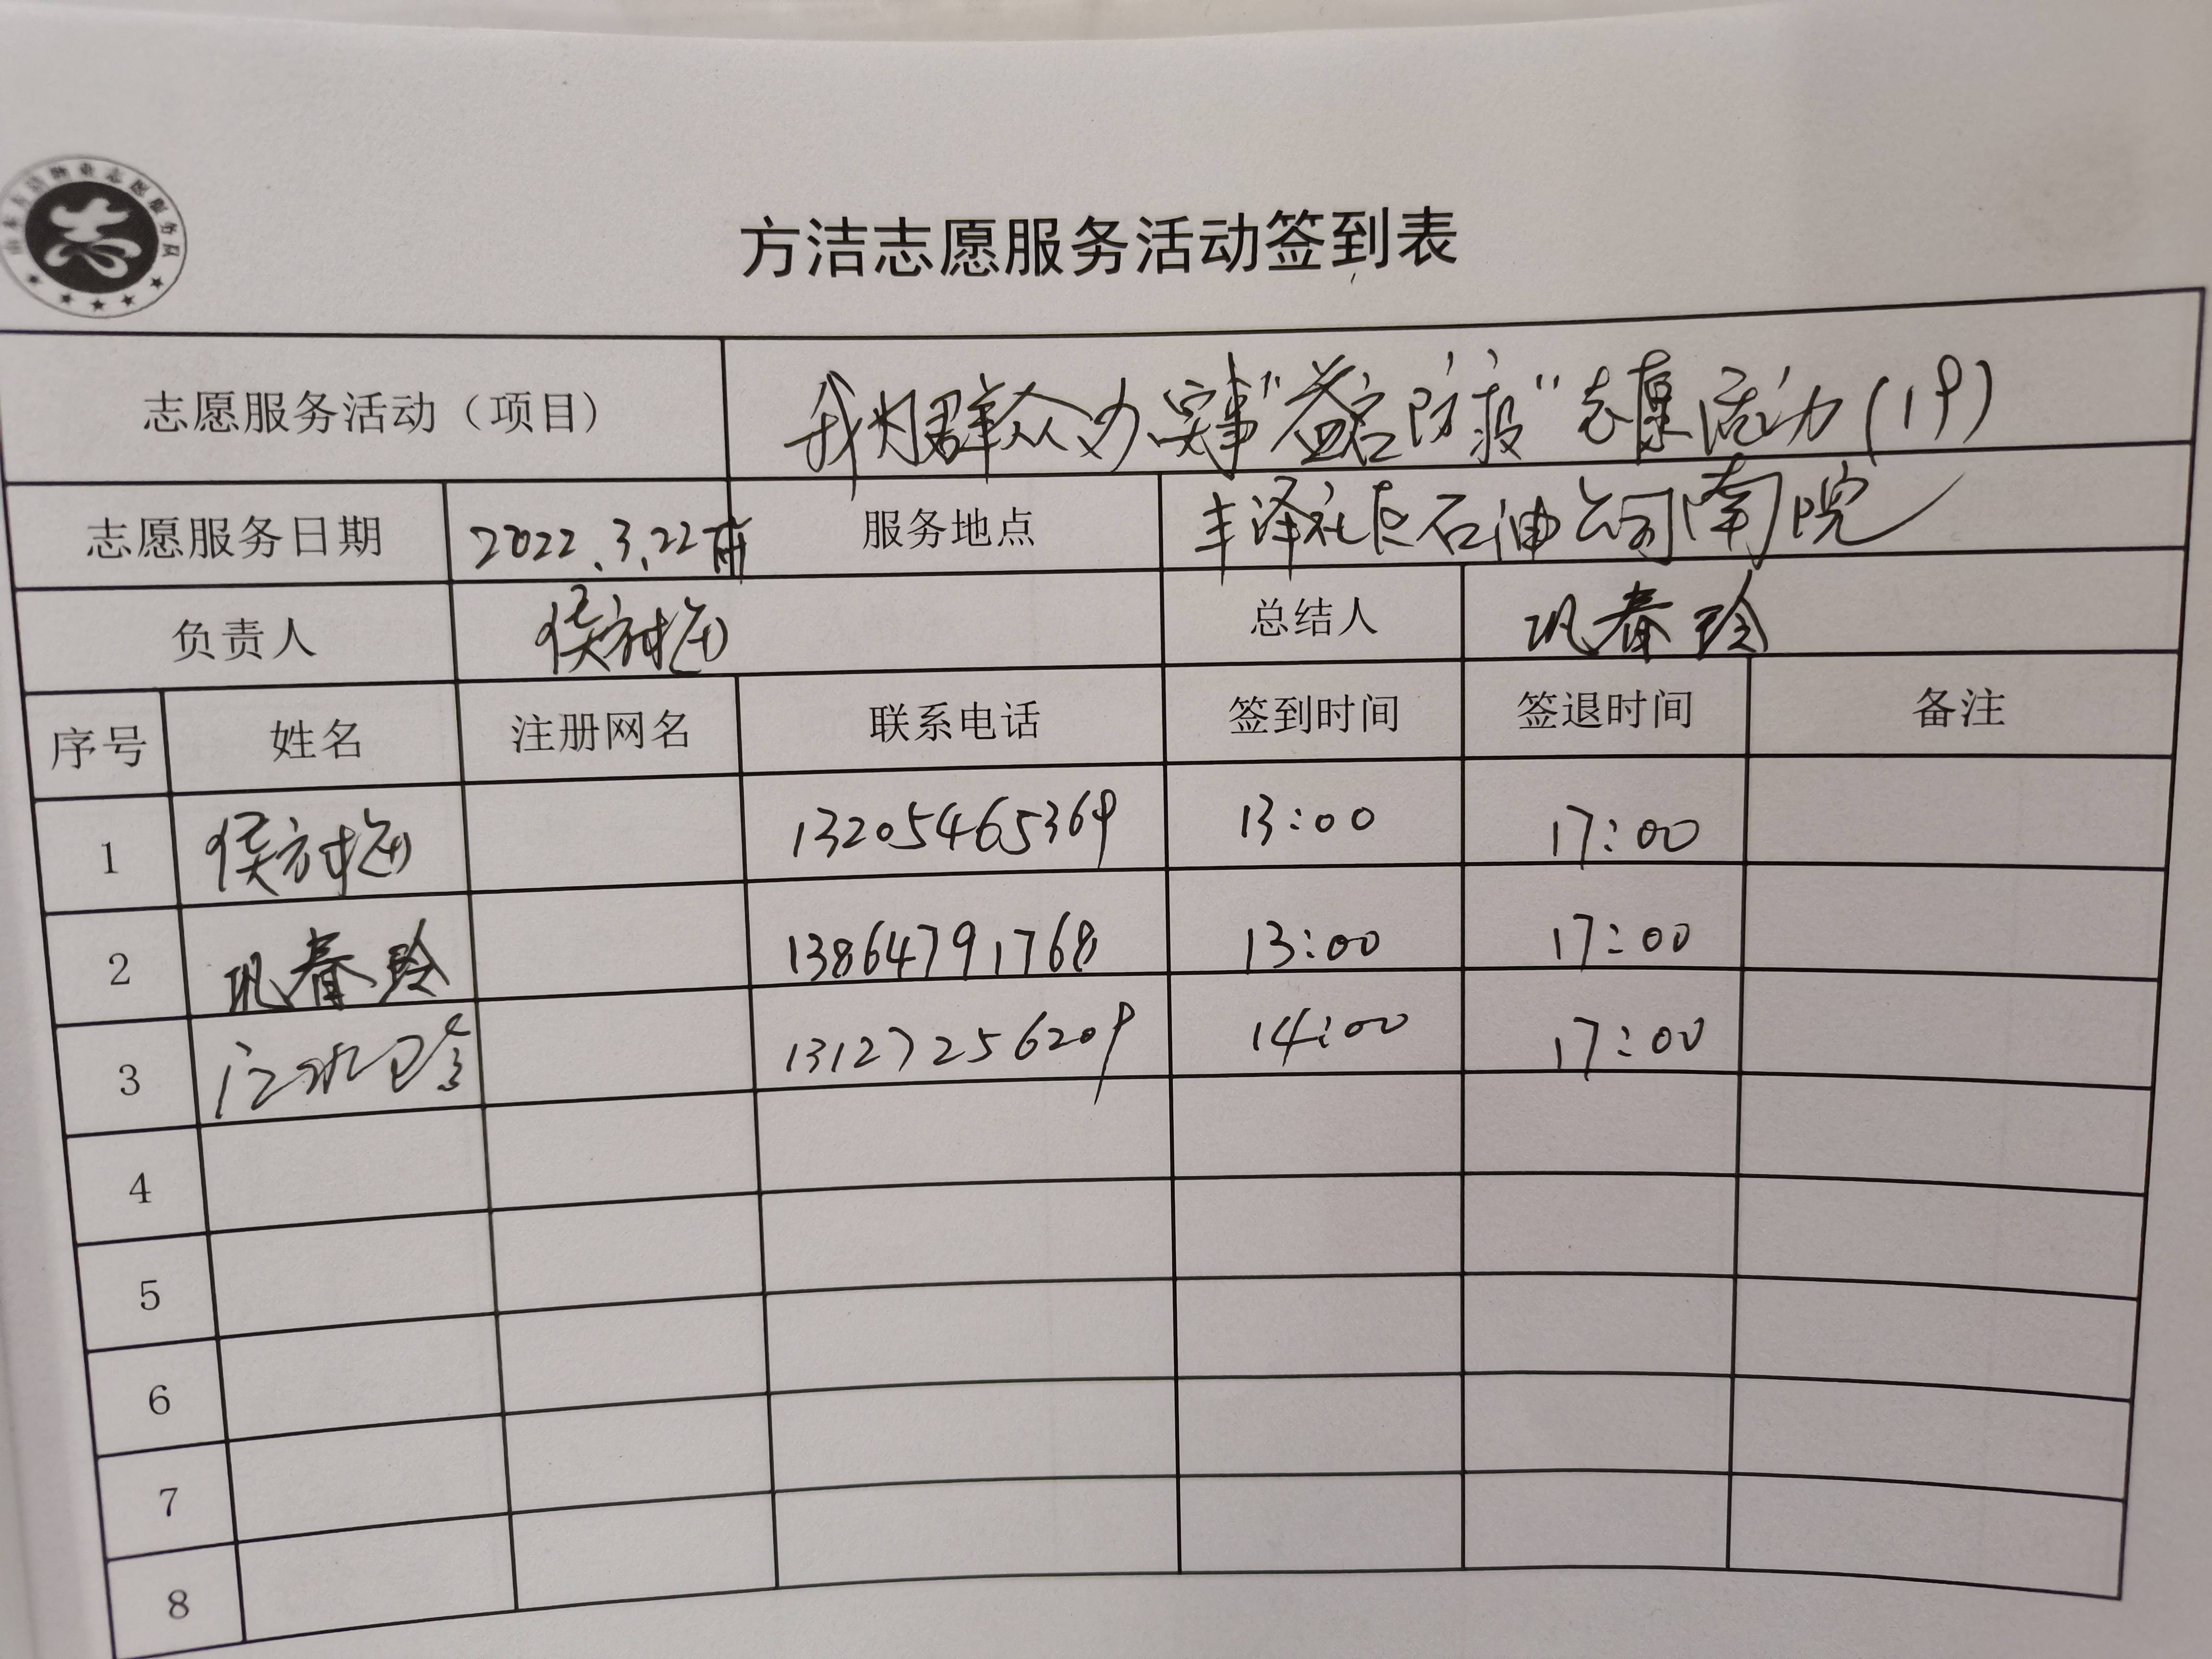 方洁物业志愿服务队
方洁志愿服务活动签到表
志愿服务活动（项目） 我为群众办实事"益起防疫"志愿活动(19)
志愿服务日期 2022.3.22 服务地点 丰泽社区石油公司南院
负责人 侯方梅 总结人 巩春玲
序号 姓名 注册网名 联系电话 签到时间 签退时间 备注
1 侯方梅 13205465369 13:00 17:00
2 巩春玲 13864791768 13:00 17:00
3 13127256209 14:00 17:00
4
5
6
7
8